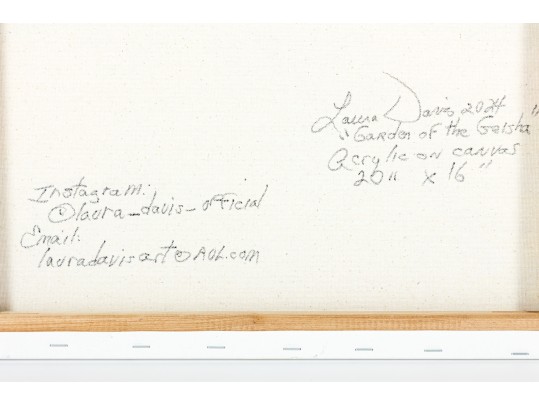 Laura Davis 2024
"Garden of the Geisha"
Acrylic on canvas
20" x 16"
Instagram:
@laura_davis_official
Email:
lauradavisart@AOL.com